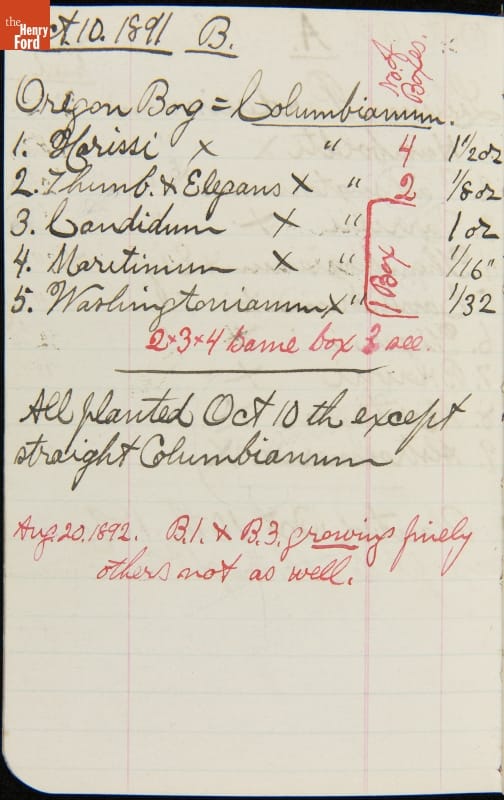 the
Henry
Ford
ct 10. 1891 B.
No. of
Boxes.
Oregon Bog = Columbianum.
1. Harissi × " 4 1 1/2 oz
2. Thumb. & Elegans × " 2 1/8 oz
3. Candidum × " 1 oz
4. Maritimum × " 1/16 "
5. Washingtonianum × " 1/32
1 Box
2 × 3 × 4 same box 2 sec.
All planted Oct 10 th except
straight Columbianum
Aug. 20. 1892. B.1. & B.3. growing finely
others not as well.